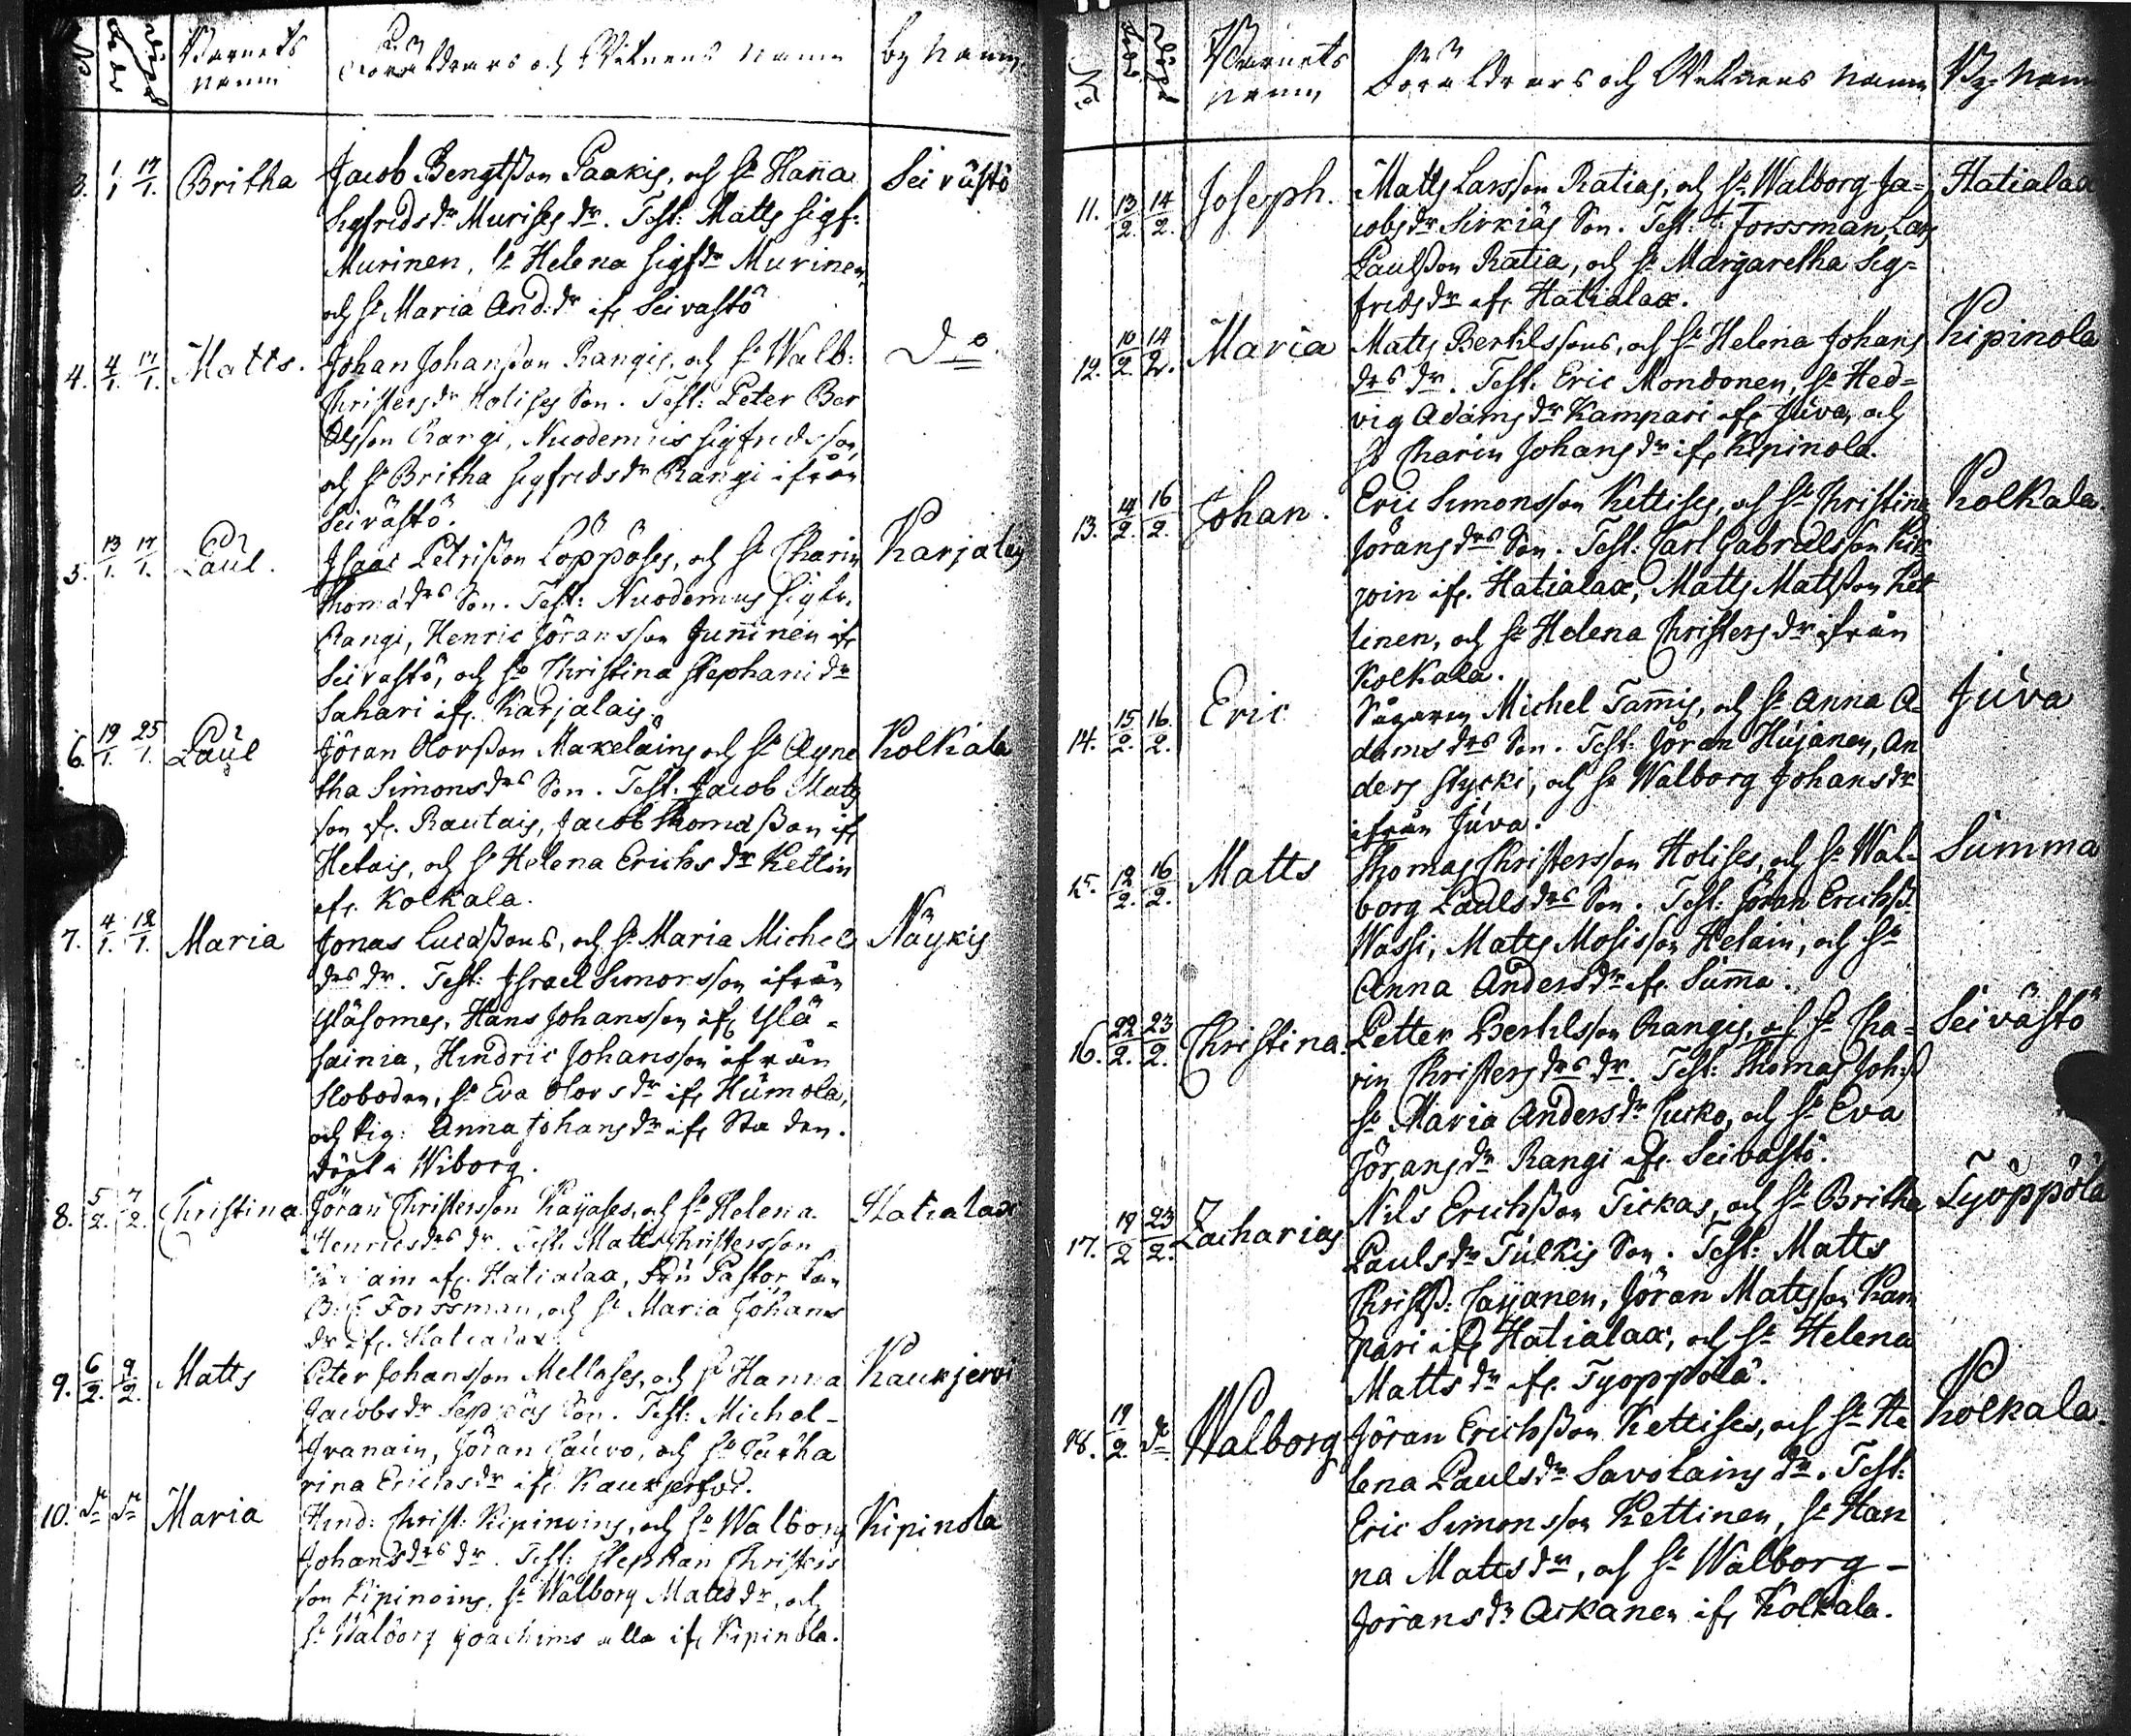 No Barnets Föräldrars och Witnens namn by Namn
namn
3. 1/1 17/1. Britha Jacob Bengtßon Paakis, och h: Hanna Seivästö
Sigfreds dr Murises dr. Test: Matts Sigf:
Murinen, h: Helena Sigfdr Murinen,
och h: Maria And: dr ifr Seivastö
4. 4/1. 17/1. Matts. Johan Johanßon Rangis, och h: Walb: Do
Christers dr Holises Son. Test: Peter Ber
telsson Rangi, Nicodemus Sigfredsson,
och h: Britha Sigfreds dr Rangi ifrån
Seivästö.
5. 13/1. 17/1. Paul. Isaac Petrißon Löppöses, och h: Charin Karjalais
Thomæ drs Son. Test: Nicodemus Sigfr.
Rangi, Henric Jöransson Juninen ifr
Seivastö, och h: Christina Stephani dr
Sahari ifr. Karjalais.
6. 19/1. 25/1. Paul Jöran Olorßon Makeläins och h: Agne Kolkala
tha Simons drs Son. Test: Jacob Mats
son ifr. Rautais, Jacob Thomaßon ifr
Hetais, och h: Helena Erichs dr Kettin
ifr. Kolkala.
7. 4/1. 12/1. Maria Jonas Lucaßons, och h: Maria Michels Näykis
drs dr. Test: Israel Simonsson ifrån
Yläsomes, Hans Johansson ifr Ylä-
sainia, Hindric Johansson ifrån
Sloboden, h: Eva Olors dr ifr Humola,
och Pig: Anna Johans dr ifr Sta den.
döpt i Wiborg.
8. 5/2. 7/2. Christina Jöran Christersson Kayases, och h: Helena Hatialax
Henrics drs dr. Test: Matts Christersson
ain ifr. Hatialax, Fru Pastor
Forssman, och h: Maria Johans
dr ifr. Hatialax
9. 6/2. 9/2. Matts Peter Johansson Mellases, och h: Hanna Kaukjerwi
Jacobs dr Seppäs Son. Test: Michel
Ivanain, Jöran Pauvo, och h: Catha
rina Erichs dr ifr
10. Do Do Maria Hind: Christ: Kipinoins, och h: Walborg Kipinola
Johans drs dr. Test: Stephan Christers
son Kipinoins, h: Walborg Matts dr, och
h: Walborg Joachims alla ifr Kipinola.
No Barnets Föräldrars och Witnens Namn By-Namn
namn
11. 13/2. 14/2. Joseph. Matts Larsson Ratias, och h: Walborg Ja- Hatialax
cobs dr Sirkiäs Son. Test: Forssman, Lars
Paulßon Ratia, och h: Margaretha Sig-
freds dr ifr Hatialax.
12. 10/2. 14/2. Maria Matts Bertilssons, och h: Helena Johans Kipinola
drs dr. Test. Eric Mondonen, h: Hed-
vig Adams dr Kampari ifr Juva, och
h: Charin Johans dr ifr Kipinola.
13. 14/2. 16/2. Johan. Eric Simonsson Kettises, och h: Christina Kolkala.
Jörans drs Son. Test: Carl Gabrielsson Kir
poin ifr. Hatialax, Matts Mattsson Ket
tinen, och h: Helena Christers dr ifrån
Kolkala.
14. 15/2. 16/2. Eric Sågaren Michel Tammis, och h: Anna A- Juva
dams drs Son. Test: Jöran Hujanen, An
ders Stycki, och h: Walborg Johans dr
ifrån Juva.
15. 12/2. 16/2. Matts Thomas Christersson Holises, och h: Wal- Summa
borg Pauls drs Son. Test: Jöran Erichß.
Wassi, Matts Mosisson Helain, och h:
Anna Anders dr ifr. Suma.
16. 22/2. 23/2. Christina Petter Bertilsson Rangis, och h: Cha- Seivästö
rin Christers drs dr. Test: Thomas Joh:ß
h: Maria Anders dr Cucko, och h: Eva
Jörans dr Rangi ifr. Seivastö.
17. 19/2 23/2. Zacharias Nils Erichßon Tickas, och h: Britha Työppölä
Pauls dr Tulkis Son. Test: Matts
Christß: Cayanen, Jöran Matsson Kam
pari ifr Hatialax, och h: Helena
Matts dr ifr. Tyoppölä.
18. 19/2. Do Walborg Jöran Erichßon Kettises, och h: He Kolkala.
lena Pauls dr Savolains dr. Test:
Eric Simonsson Kettinen, h: Han
na Matts dr, och h: Walborg
Jörans dr Askanen ifr Kolkala.